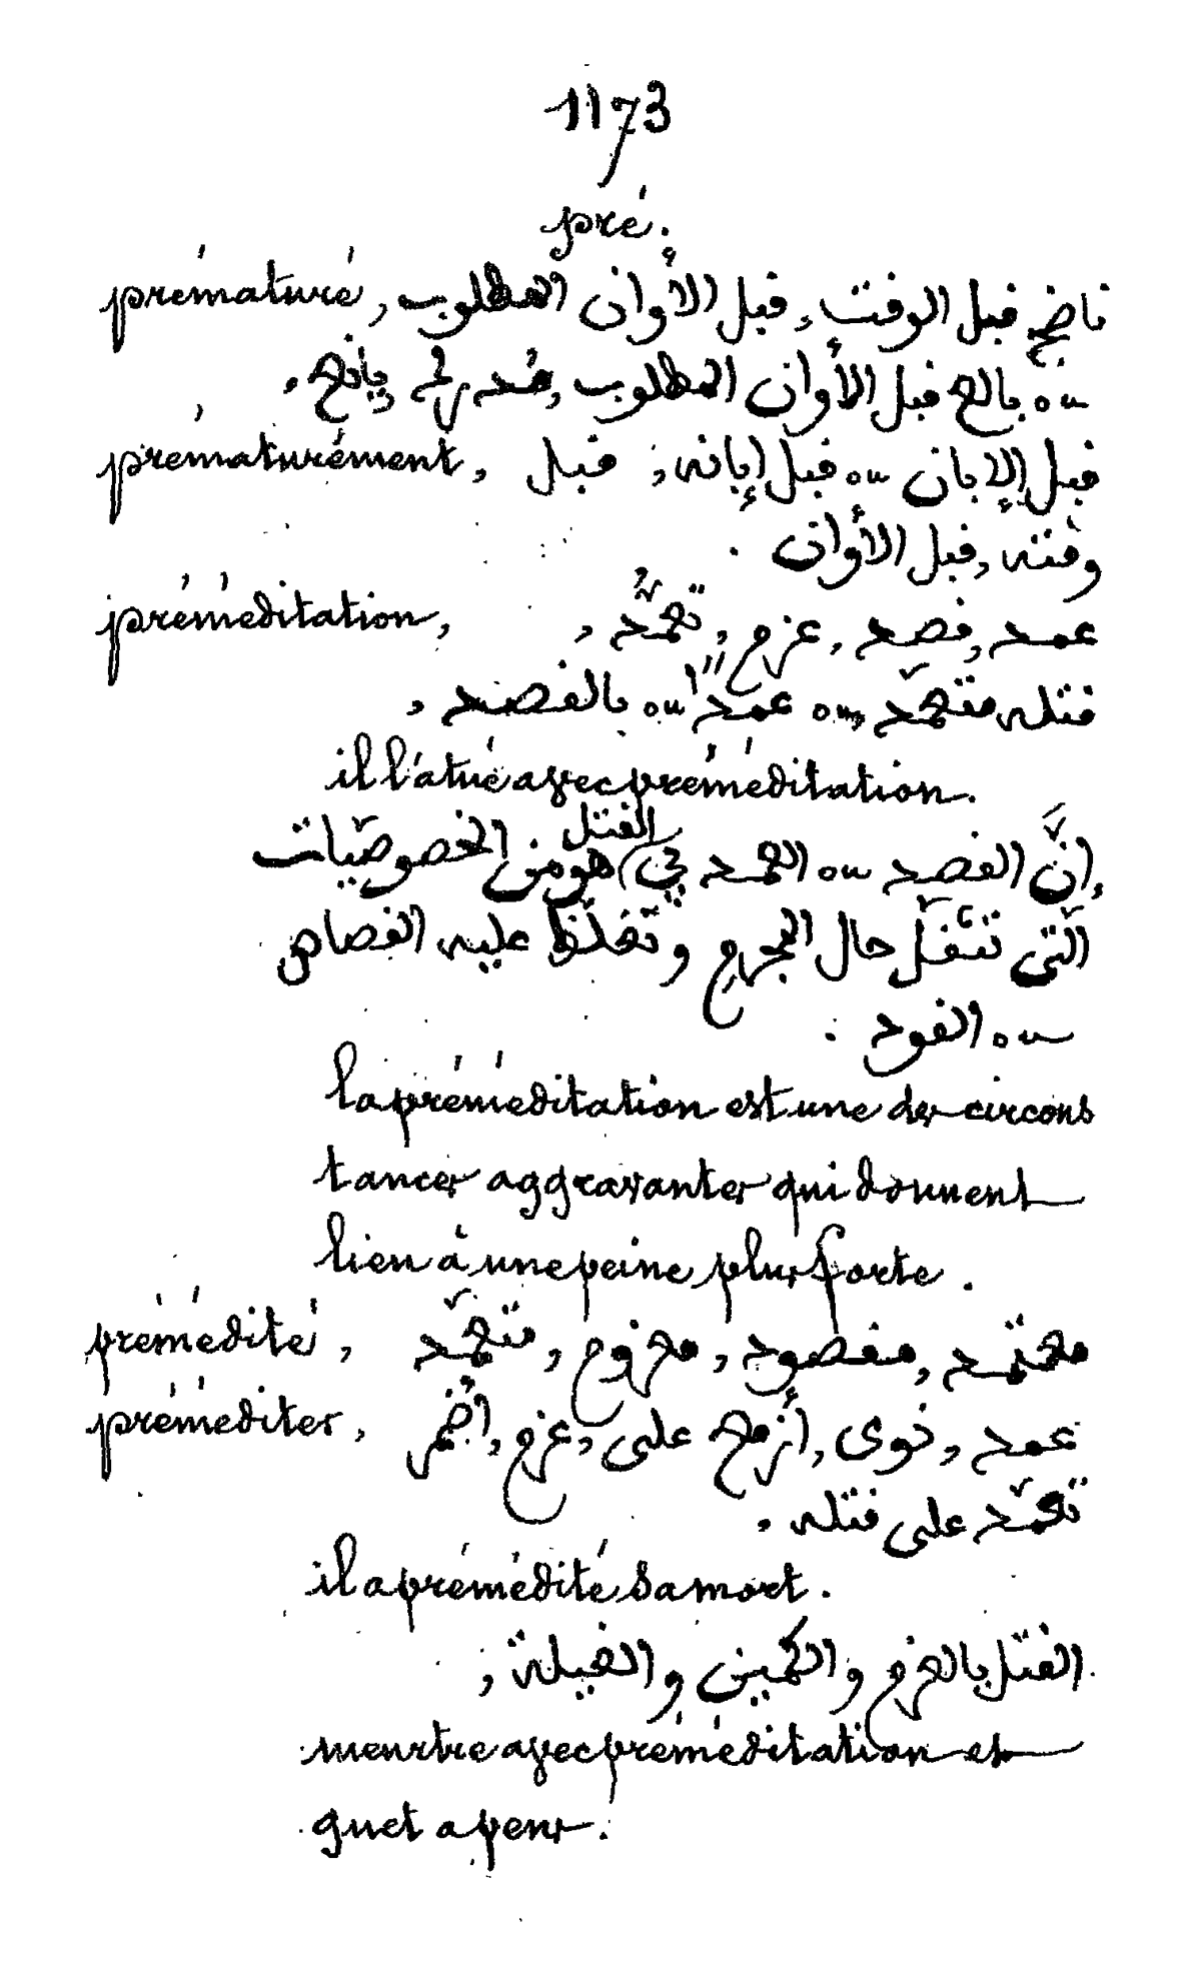 1173
pré.
prématuré, ناضج قبل الوقت, قبل الأوان المطلوب
ou بالغ قبل الأوان المطلوب, يانع.
prématurément, قبل الإبان ou قبل إبانه; قبل
وقته, قبل الأوان.
préméditation, عمد, قصد, عزم, تعمُّد,
قتله متعمّد ou عمدًا ou بالقصد,
il l'a tué avec préméditation.
إنَّ القصد ou العمد في القتل هو من الخصوصيّات
الّتي تثقّل حال المجرم وتغلّظ عليه القصاص
ou القود.
la préméditation est une des circons
tances aggravantes qui donnent
lieu à une peine plus forte.
prémédité, معتمد, مقصود, معزوم, متعمّد
préméditer, عمد, نوى, أزمع على, عزم, أضمر
تعمّد على قتله,
il a prémédité sa mort.
القتل بالعزم والكمين والغيلة;
meurtre avec préméditation et
guet apens.